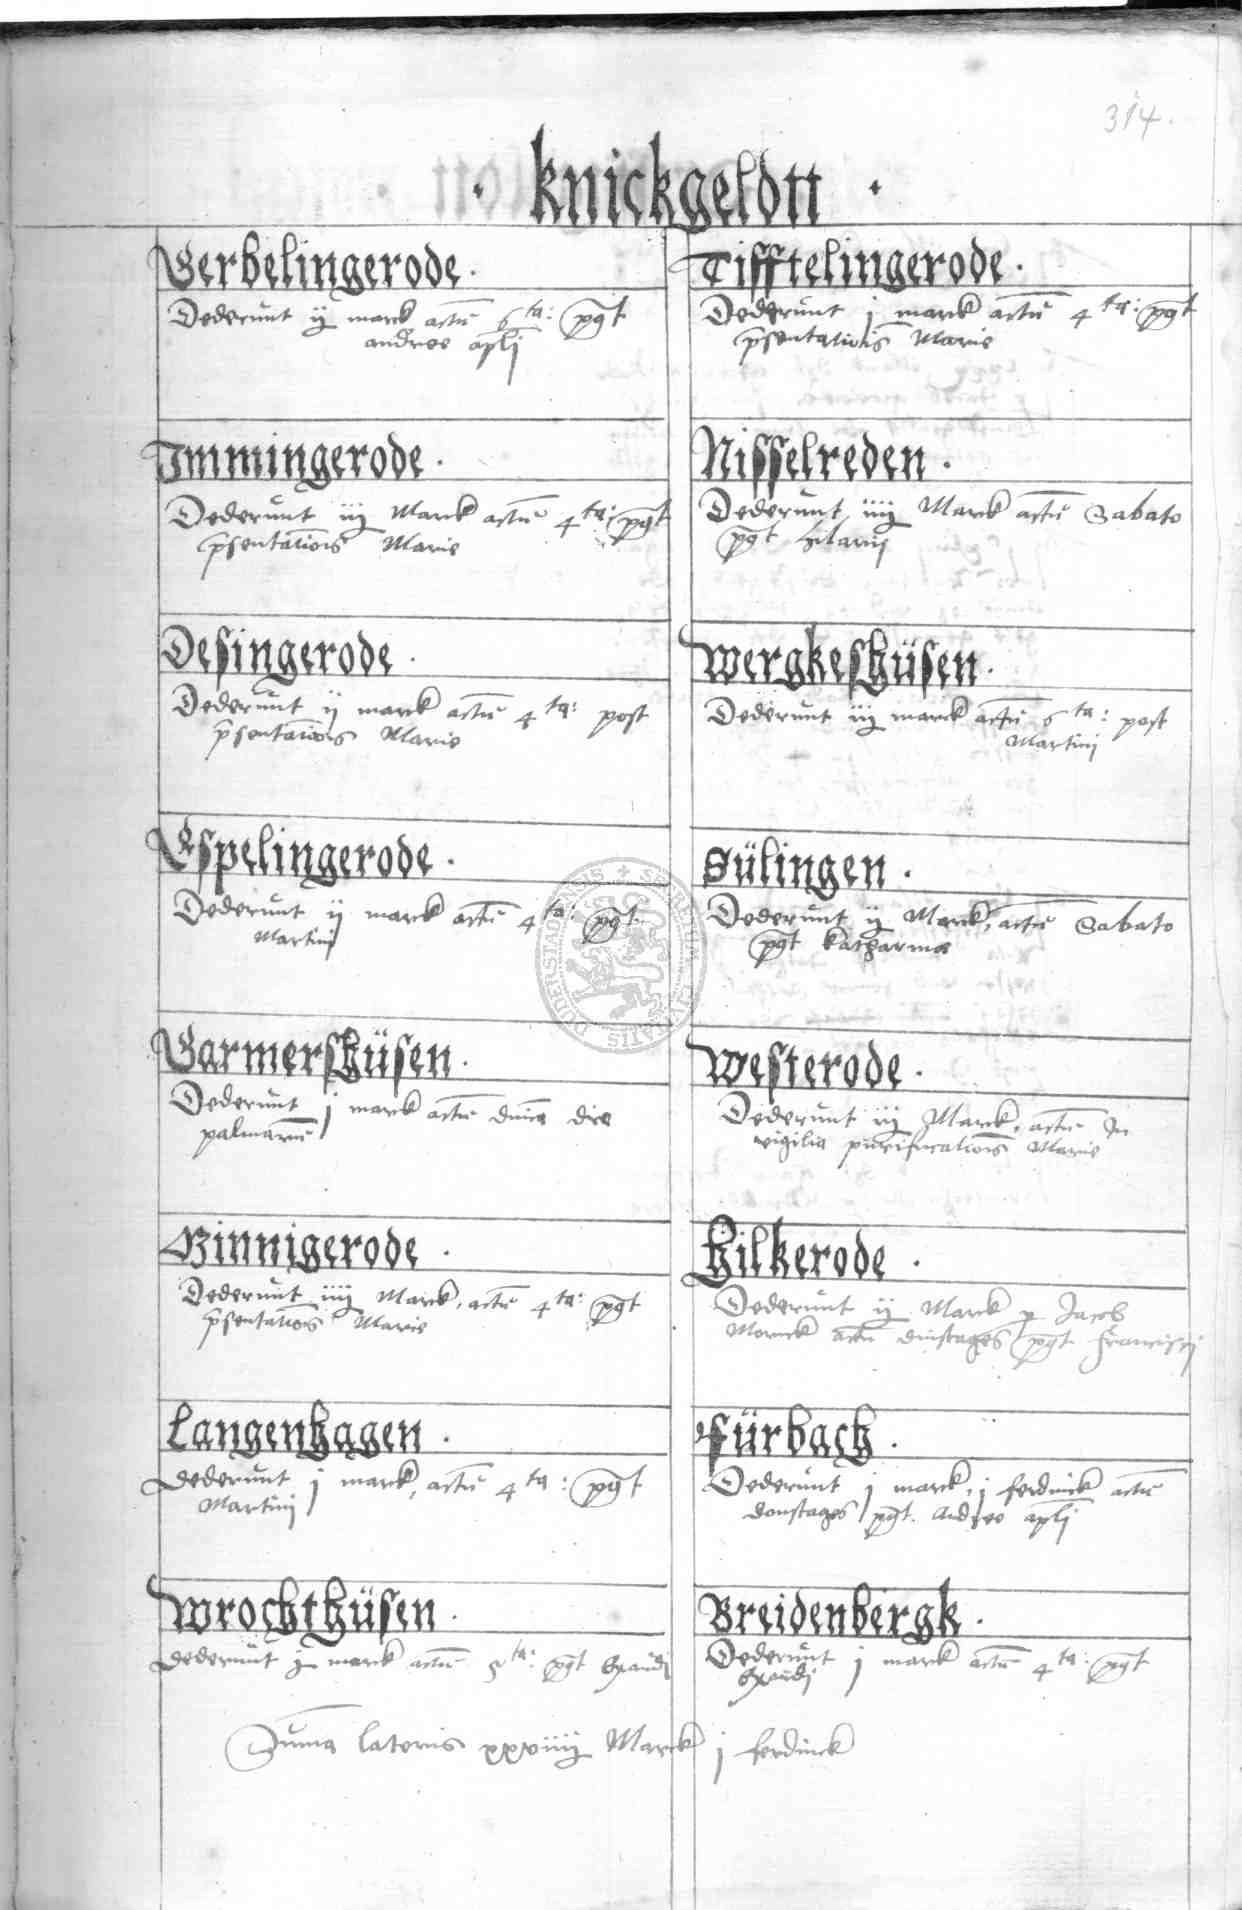 314.
· knickgeldtt ·
Gerbelingerode .
Dederunt ij marck actu 6ta: pgt
andree apli
Immingerode .
Dederunt iij Marck actu 4ta: pgt
psentatiois Marie
Desingerode .
Dederunt ij marck actu 4ta: post
psentatiois Marie
Espelingerode .
Dederunt ij marck actu 4ta: pgt
Martini
Garmershüsen .
Dederunt j marck actu dnica die
palmaru
Binnigerode .
Dederunt iiij Marck, actu 4ta: pgt
psentatiois Marie
Langenhagen .
dederunt j marck, actu 4ta: pgt
Martini
Wrochthüsen .
dederunt ij marck actu 5ta: pgt Exaudi
Tifftelingerode .
Dederunt j marck actu 4ta: pgt
psentationis Marie
Nisselreden .
Dederunt iiij Marck actu Sabato
pgt hilarij
Wergkeshüsen .
Dederunt iij marck actu 6ta: post
Martini
Sülingen .
Dederunt ij Marck, actu Sabato
pgt katharina
Westerode .
Dederunt iij Marck, actu In
vigilia purificatiois Marie
Hilkerode .
Dederunt ij Marck p Jacob
actu dinstages pgt Francisci
Fürbach .
Dederunt j marck, j ferdinck actu
donstages pgt. Andree apli
Breidenbergk .
Dederunt j marck actu 4ta: pgt
Exaudi
Suma lateris xxxviiij Marck j ferdinck
SECRETUM CIVITATIS DUDERSTADENSIS